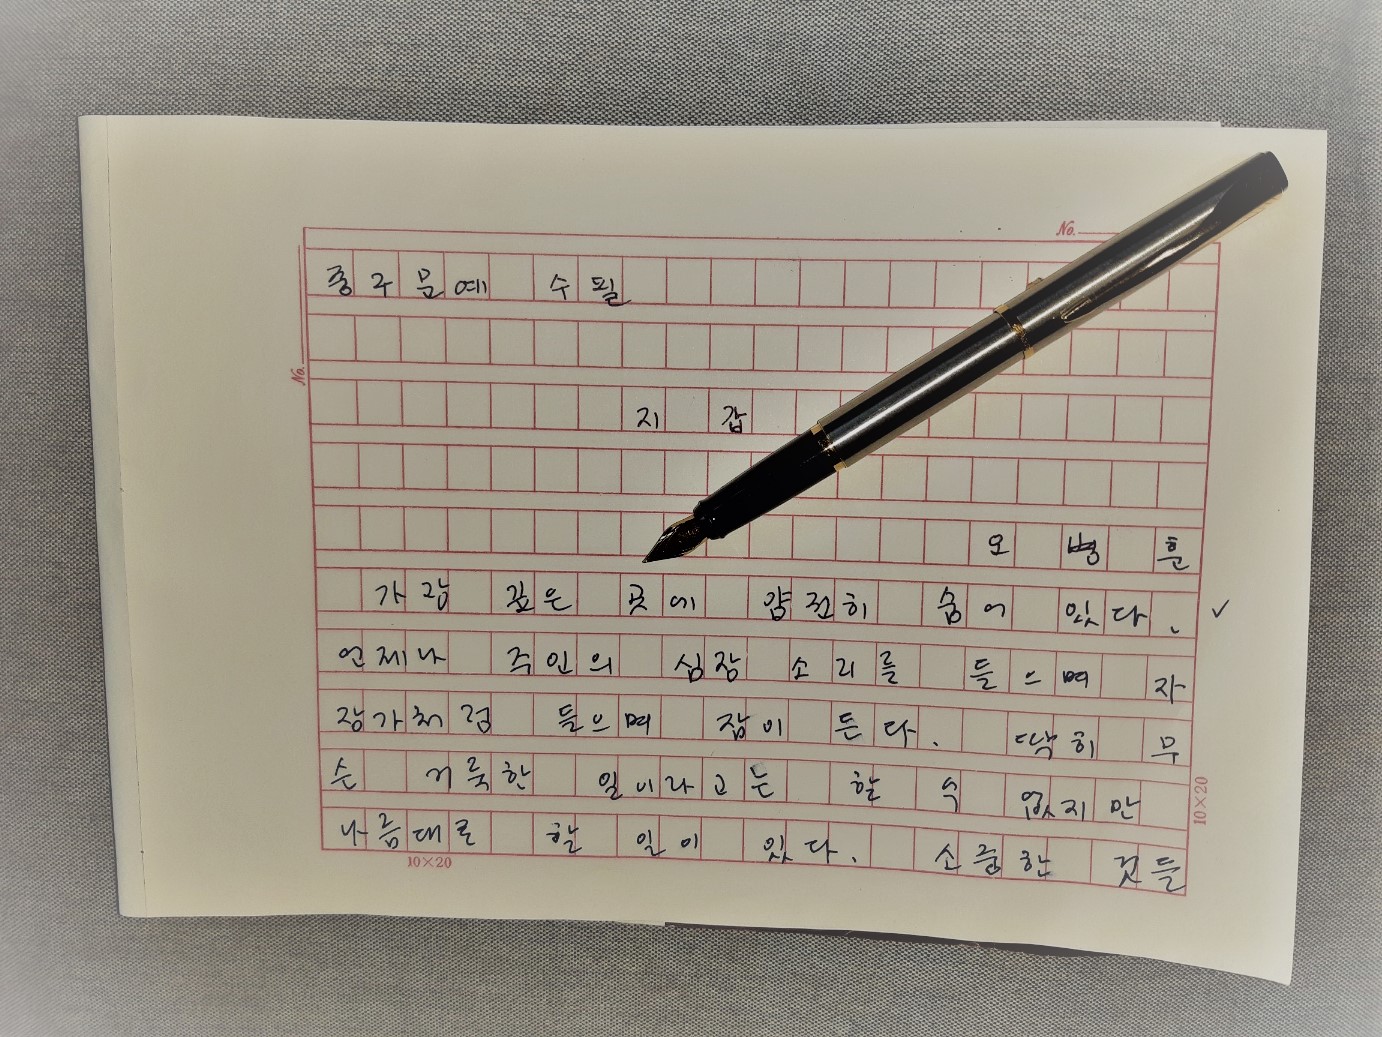 No.
중구문예 수필
No.
지 갑
오 병 훈
가장 깊은 곳에 얌전히 숨어 있다. ✓
언제나 주인의 심장 소리를 들으며 자
장가처럼 들으며 잠이 든다. 딱히 무
슨 거룩한 일이라고는 할 수 없지만
나름대로 할 일이 있다. 소중한 것들
10×20
10×20